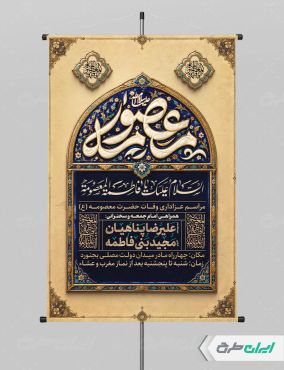 السلام علیک یا فاطمة المعصومة
مراسم عزاداری وفات حضرت معصومه (ع)
همراهی امام جمعه و سخنرانی:
علیرضا پناهیان
مجید بنی فاطمه
مکان: چهارراه مادر میدان دولت مصلی بجنورد
زمان: شنبه تا پنجشنبه بعد از نماز مغرب و عشاء
ایران طرح